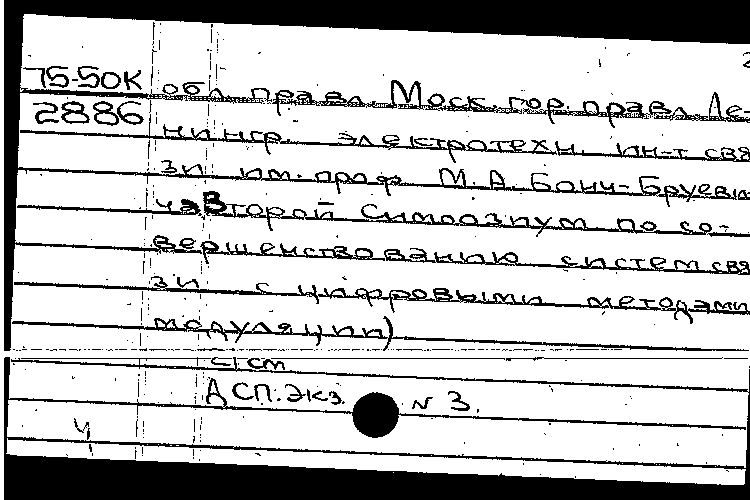 2
75-50К обл. правл. Моск. гор. правл. Ле-
2886 нингр. электротехн. ин-т свя
зи им. проф. М. А. Бонч-Бруеви
ча Второй Симпозиум по со-
вершенствованию систем свя
зи с цифровыми методами
модуляции)
ст
ДСП. Экз. N 3.
4